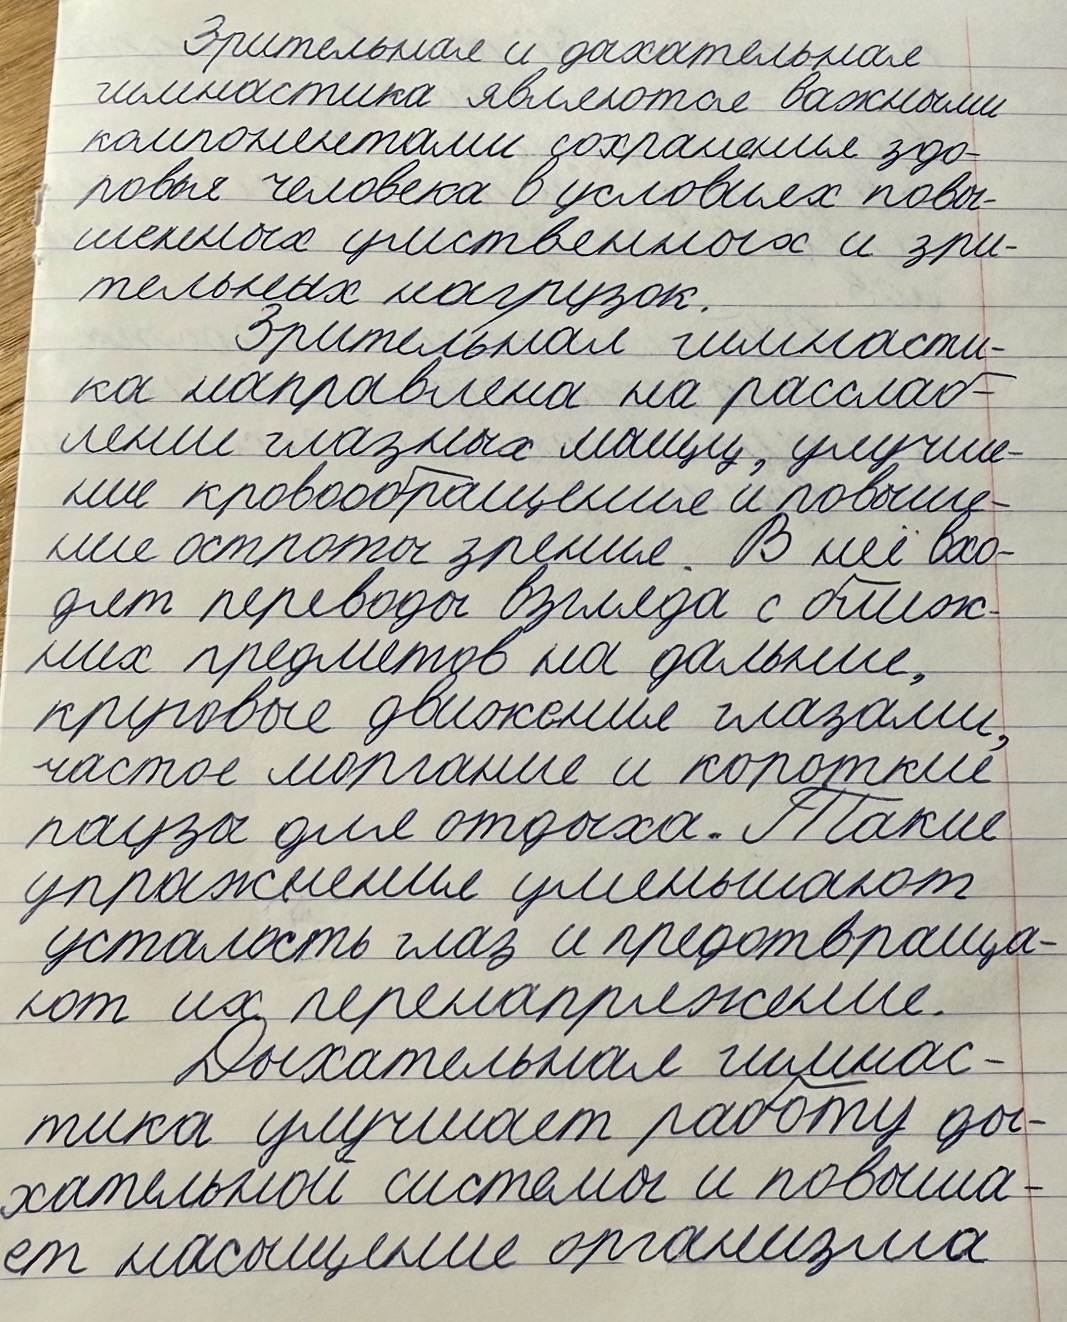 Зрительная и дыхательная
гимнастика являются важными
компонентами сохранения здо-
ровья человека в условиях повы-
шенных умственных и зри-
тельных нагрузок.
Зрительная гимнасти-
ка направлена на расслаб-
ление глазных мышц, улучше-
ние кровообращения и повыше-
ние остроты зрения. В неё вхо-
дят переводы взгляда с ближ-
них предметов на дальние,
круговые движения глазами,
частое моргание и короткие
паузы для отдыха. Такие
упражнения уменьшают
усталость глаз и предотвраща-
ют их перенапряжение.
Дыхательная гимнас-
тика улучшает работу ды-
хательной системы и повыша-
ет насыщение организма